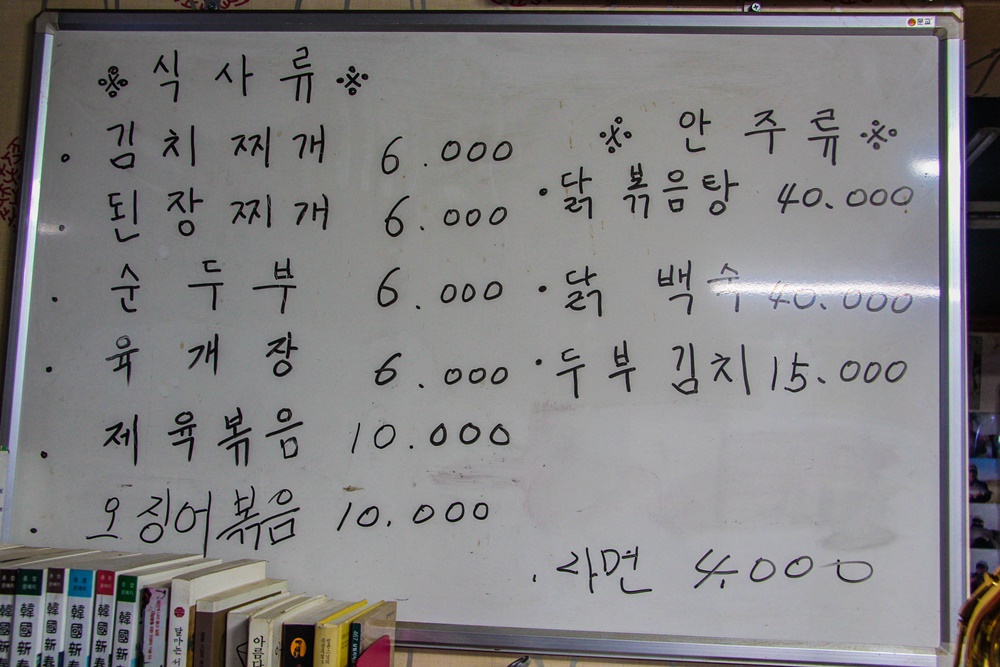 ※ 식사류 ※
· 김치찌개 6.000
· 된장찌개 6.000
· 순두부 6.000
· 육개장 6.000
· 제육볶음 10.000
· 오징어볶음 10.000
※ 안주류 ※
· 닭볶음탕 40.000
· 닭백숙 40.000
· 두부김치 15.000
· 라면 4,000
문교
韓國新春
韓國新春
韓國新春
韓國新春
韓國新春
韓國新
아름다